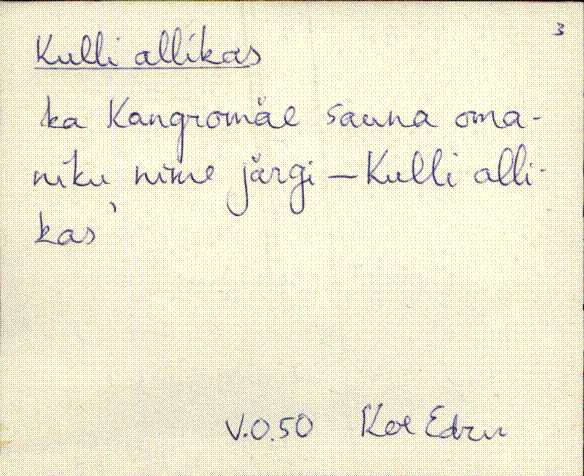 3
Kulli allikas
ka Kangromäe sauna oma-
niku nime järgi – Kulli alli-
kas'
V.O.50 Koe Edru